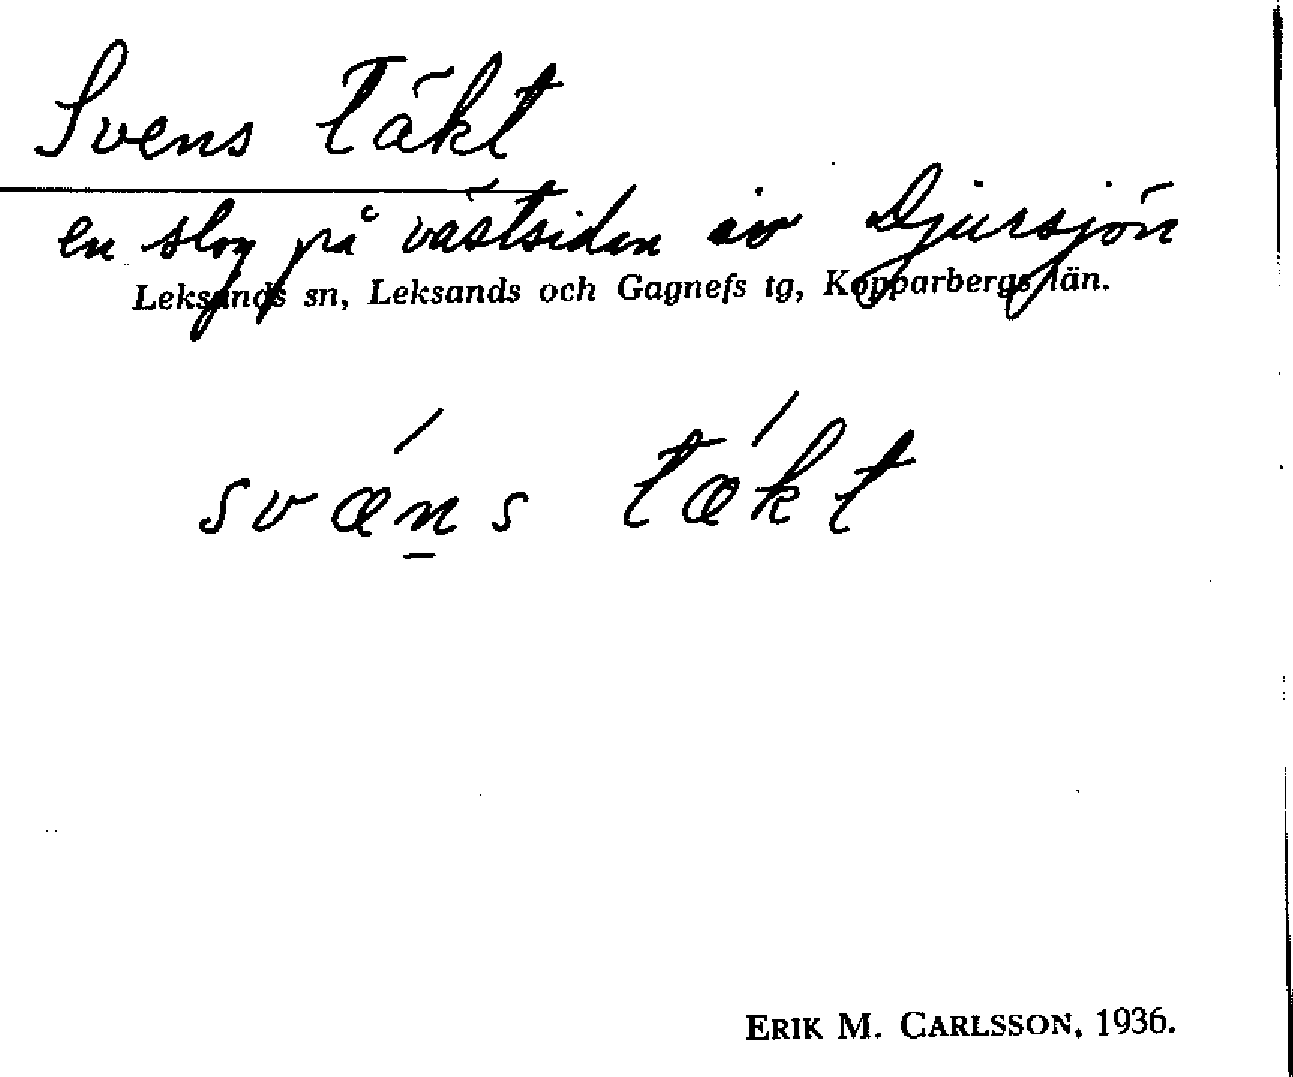 Svens täkt
en slog på västsiden av Djursjön
Leksands sn, Leksands och Gagnefs tg, Kopparbergs län.
svǽn̲s tǽkt
ERIK M. CARLSSON, 1936.